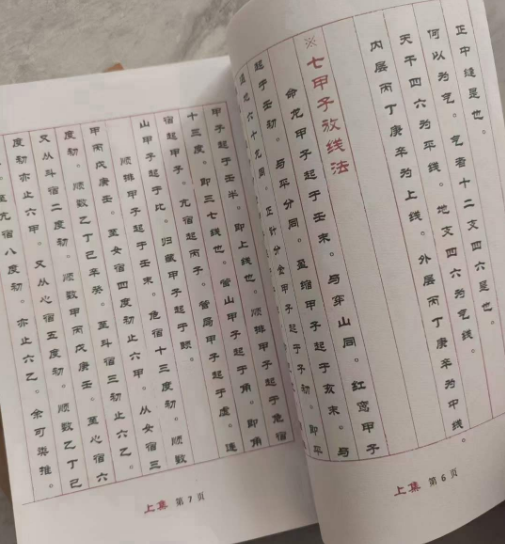 正中缝是也。
何以为气。气者十二支四六是也。
天干四六为平线。地支四六为气线。
内层丙丁庚辛为上线。外层丙丁庚辛为中线。
※七甲子放线法
甲子起于壬末。与穿山同。红鸾甲子
起于壬初。与平分同。盈缩甲子起于亥末。与
六十龙同。正针分金甲子起于子初。即平
甲子起于壬半。即上线也。顺排甲子起于危宿
十三度。即三七线也。管山甲子起于角。即角
宿起甲子。亢宿起丙子。管局甲子起于虚。连
山甲子起于比。归藏甲子起于颐。
顺排甲子起于壬末。危宿十三度初。顺数
甲丙戊庚壬。至女宿四度初止六甲。从女宿三
度初。顺数乙丁己辛癸。至斗宿三初止六乙。
又从斗宿二度初。顺数甲丙戊庚壬。至心宿六
度初亦止六甲。又从心宿五度初。顺数乙丁己
至亢宿八度初。亦止六乙。余可类推。
上集 第6页
上集 第7页